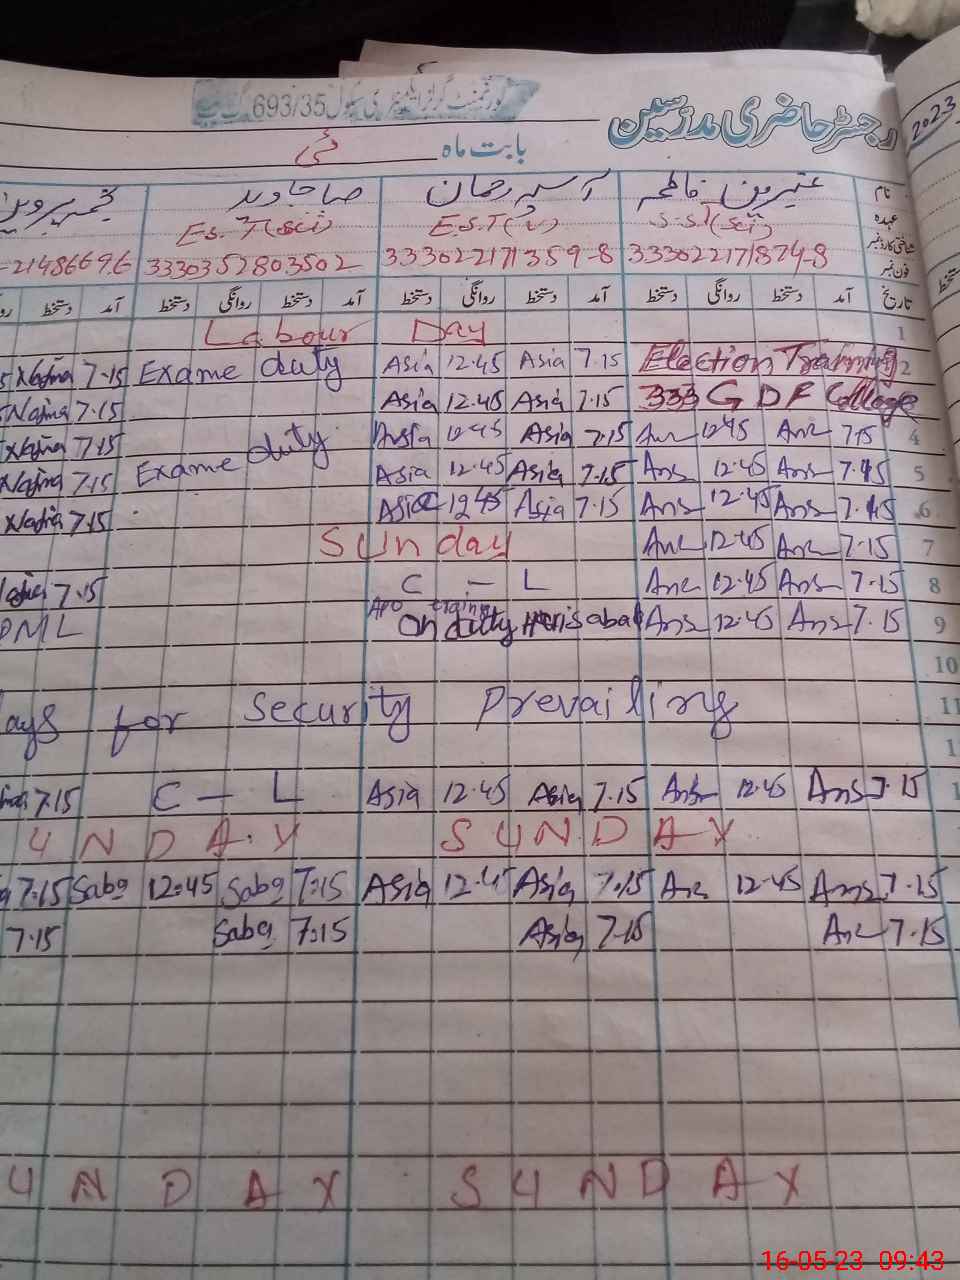 2023
رجسٹر حاضری مدرسین گورنمنٹ گرلز ایلیمنٹری سکول 693/35
بابت ماہ مئی
نام عنبرین فاطمہ آسیہ رحمان صبا جاوید نجمہ پروین
عہدہ S.S.T(Sci) E.S.T( ) E.S.T(Sci)
شناختی کارڈ نمبر 333022171874-8 333022171359-8 3330352803502 -21486696
فون نمبر
تاریخ آمد دستخط روانگی دستخط آمد دستخط روانگی دستخط آمد دستخط روانگی دستخط آمد دستخط
1 Labour Day
Najma 7.15 Exame duty Asia 12.45 Asia 7.15 Election Training 2
Najma 7.15 Asia 12.45 Asia 7.15 333 G D F College
Najma 7.15 Asia 12.45 Asia 7.15 12.45 7.15 4
Najma 7.15 Exame duty Asia 12.45 Asia 7.15 Ans 12.45 Ans 7.15 5
Najma 7.15 Asia 12.45 Asia 7.15 Ans 12.45 Ans 7.15 6
Sunday 12.45 7.15 7
7.15 C - L 12.45 Ans 7.15 8
PML On duty Ans 12.45 Ans 7.15 9
10
for Security Prevailing 11
7.15 C - L Asia 12.45 Asia 7.15 Ans 12.45 Ans 7.15
UNDAY SUNDAY
7.15 Saba 12:45 Saba 7:15 Asia 12.45 Asia 7.15 12.45 Ans 7.15
7.15 Saba 7:15 Asia 7.15 7.15
UNDAY SUNDAY
16-05-23 09:43